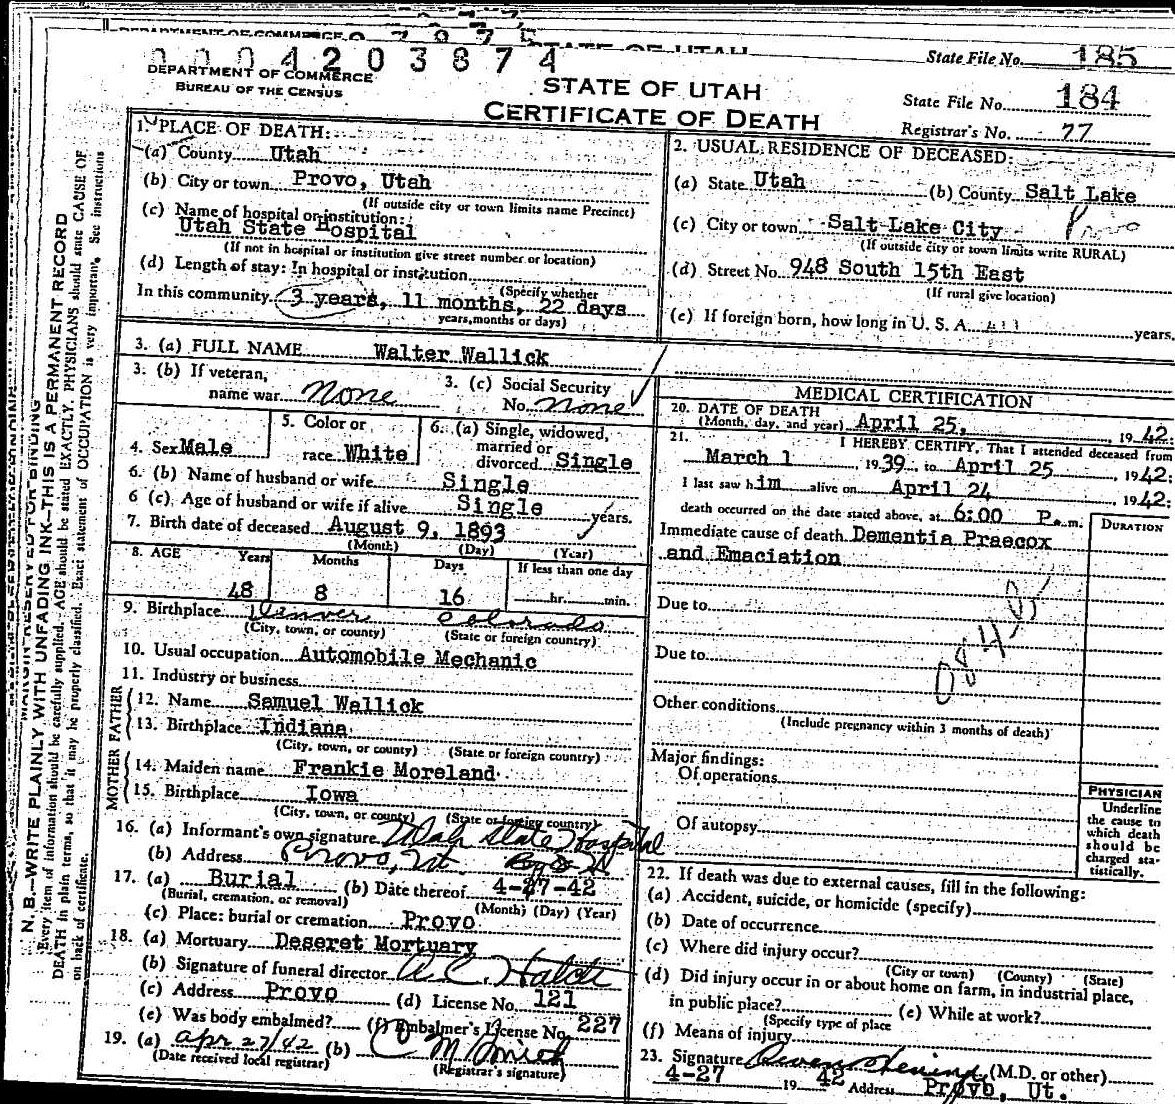 0004203874
DEPARTMENT OF COMMERCE
BUREAU OF THE CENSUS
STATE OF UTAH
CERTIFICATE OF DEATH
State File No. 185
State File No. 184
Registrar's No. 77
1. PLACE OF DEATH:
(a) County Utah
(b) City or town Provo, Utah
(If outside city or town limits name Precinct)
(c) Name of hospital or institution:
Utah State Hospital
(If not in hospital or institution give street number or location)
(d) Length of stay: In hospital or institution
(Specify whether
In this community 3 years, 11 months, 22 days
years, months or days)
2. USUAL RESIDENCE OF DECEASED:
(a) State Utah (b) County Salt Lake
(c) City or town Salt Lake City Provo
(If outside city or town limits write RURAL)
(d) Street No. 948 South 15th East
(If rural give location)
(e) If foreign born, how long in U. S. A. years.
3. (a) FULL NAME Walter Wallick
3. (b) If veteran, name war None
3. (c) Social Security No. none
4. Sex Male
5. Color or race White
6. (a) Single, widowed, married or divorced Single
6. (b) Name of husband or wife Single
6 (c) Age of husband or wife if alive Single years.
7. Birth date of deceased August 9, 1893
(Month) (Day) (Year)
8. AGE Years Months Days If less than one day
48 8 16 hr. min.
9. Birthplace Denver Colorado
(City, town, or county) (State or foreign country)
10. Usual occupation Automobile Mechanic
11. Industry or business
FATHER
12. Name Samuel Wallick
13. Birthplace Indiana
(City, town, or county) (State or foreign country)
MOTHER
14. Maiden name Frankie Moreland
15. Birthplace Iowa
(City, town, or county) (State or foreign country)
16. (a) Informant's own signature Utah State Hospital
(b) Address Provo, Ut.
17. (a) Burial (b) Date thereof 4-27-42
(Burial, cremation, or removal) (Month) (Day) (Year)
(c) Place: burial or cremation Provo
18. (a) Mortuary Deseret Mortuary
(b) Signature of funeral director
(c) Address Provo (d) License No. 121
(e) Was body embalmed? (f) Embalmer's License No. 227
19. (a) Apr 27/42 (b)
(Date received local registrar) (Registrar's signature)
MEDICAL CERTIFICATION
20. DATE OF DEATH
(Month, day, and year) April 25, 1942.
21. I HEREBY CERTIFY, That I attended deceased from
March 1, 1939 to April 25, 1942.
I last saw him alive on April 24, 1942.
death occurred on the date stated above, at 6:00 P.m.
DURATION
Immediate cause of death Dementia Praecox
and Emaciation
Due to
Due to
Other conditions
(Include pregnancy within 3 months of death)
Major findings:
Of operations
Of autopsy
PHYSICIAN
Underline
the cause to
which death
should be
charged sta-
tistically.
22. If death was due to external causes, fill in the following:
(a) Accident, suicide, or homicide (specify)
(b) Date of occurrence
(c) Where did injury occur?
(City or town) (County) (State)
(d) Did injury occur in or about home on farm, in industrial place,
in public place? (e) While at work?
(Specify type of place
(f) Means of injury
23. Signature (M.D. or other)
4-27 1942 Address Provo, Ut.
MARGIN RESERVED FOR BINDING
N. B.—WRITE PLAINLY WITH UNFADING INK—THIS IS A PERMANENT RECORD
Every item of information should be carefully supplied. AGE should be stated EXACTLY. PHYSICIANS should state CAUSE OF
DEATH in plain terms, so that it may be properly classified. Exact statement of OCCUPATION is very important. See instructions
on back of certificate.